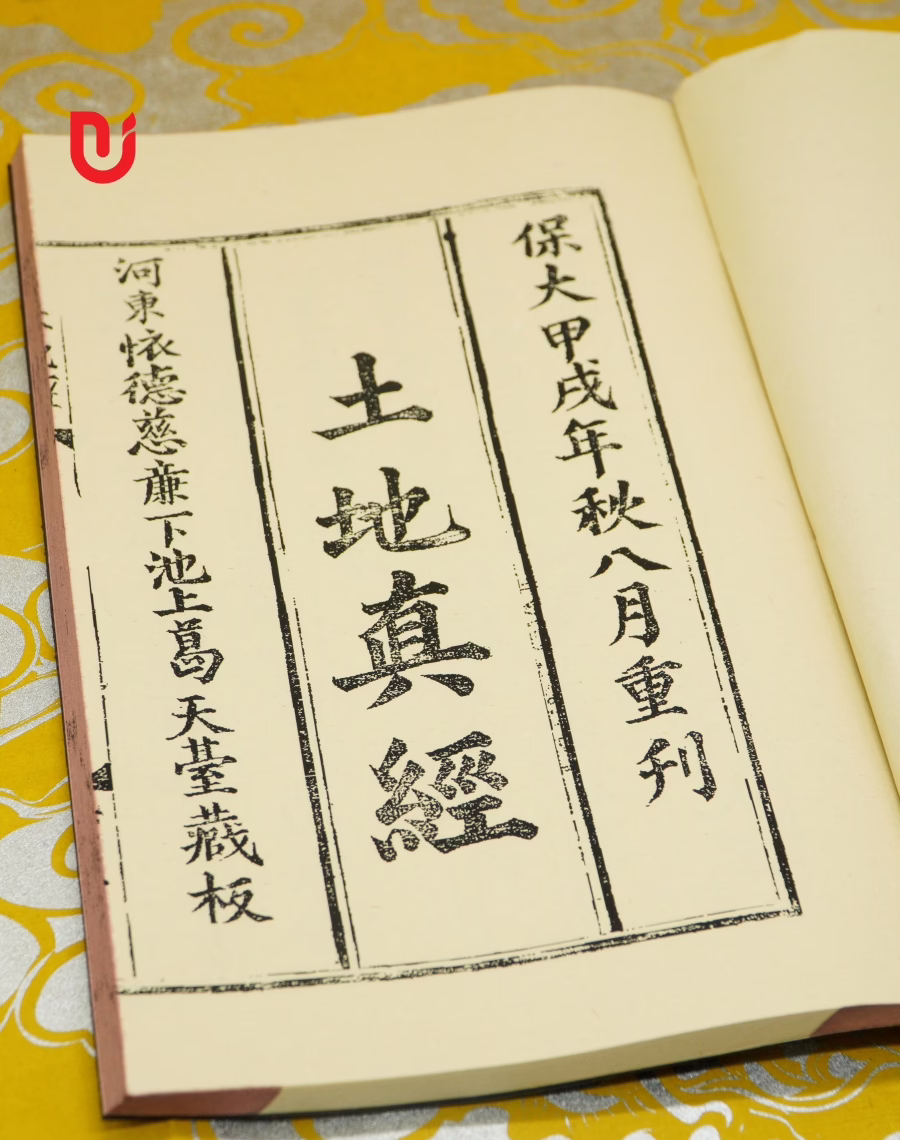 保大甲戌年秋八月重刊
土地真經
河東懷德慈廉下池上葛天臺藏板